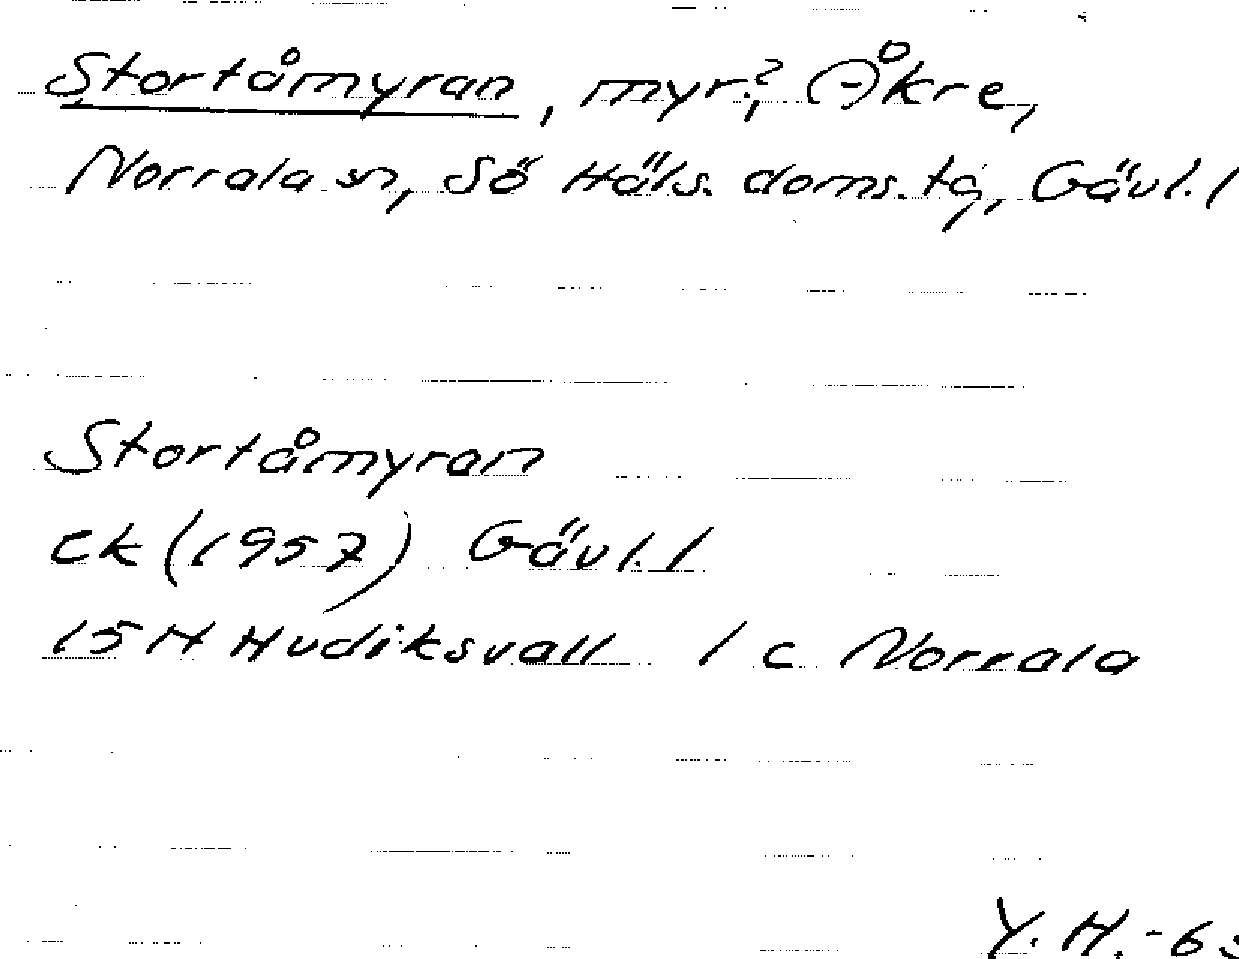 Stortåmyran, myr?, Åkre,
Norrala sn, Sö Häls. doms.tg, Gävl. l
Stortåmyran
Ek (1957) Gävl. l
15 H Hudiksvall 1 c Norrala
Y. H. -63